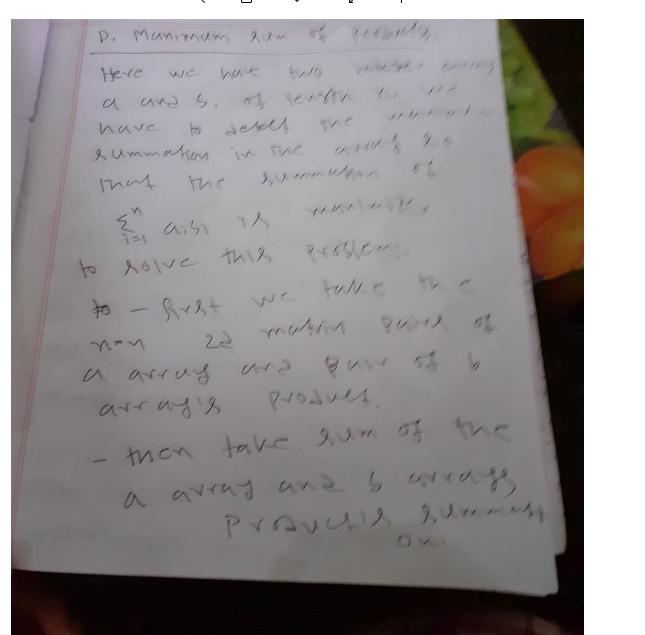 D. Maximum sum of products
Here we have two integer array
a and b. of length n. we
have to detect the
summation in the array so
that the summation of
∑ⁿᵢ₌₁ aibi is maximize.
to solve this problem
- first we take the
n*n 2d matrix pairs of
a array and pair of b
array's product.
- then take sum of the
a array and b arrays
product's summati
on.